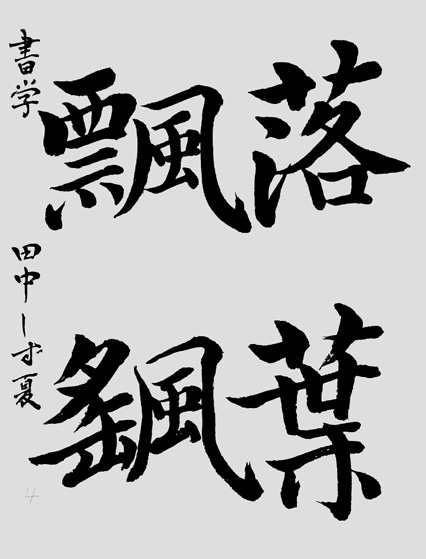 落葉
飄颻
書学 田中しず夏